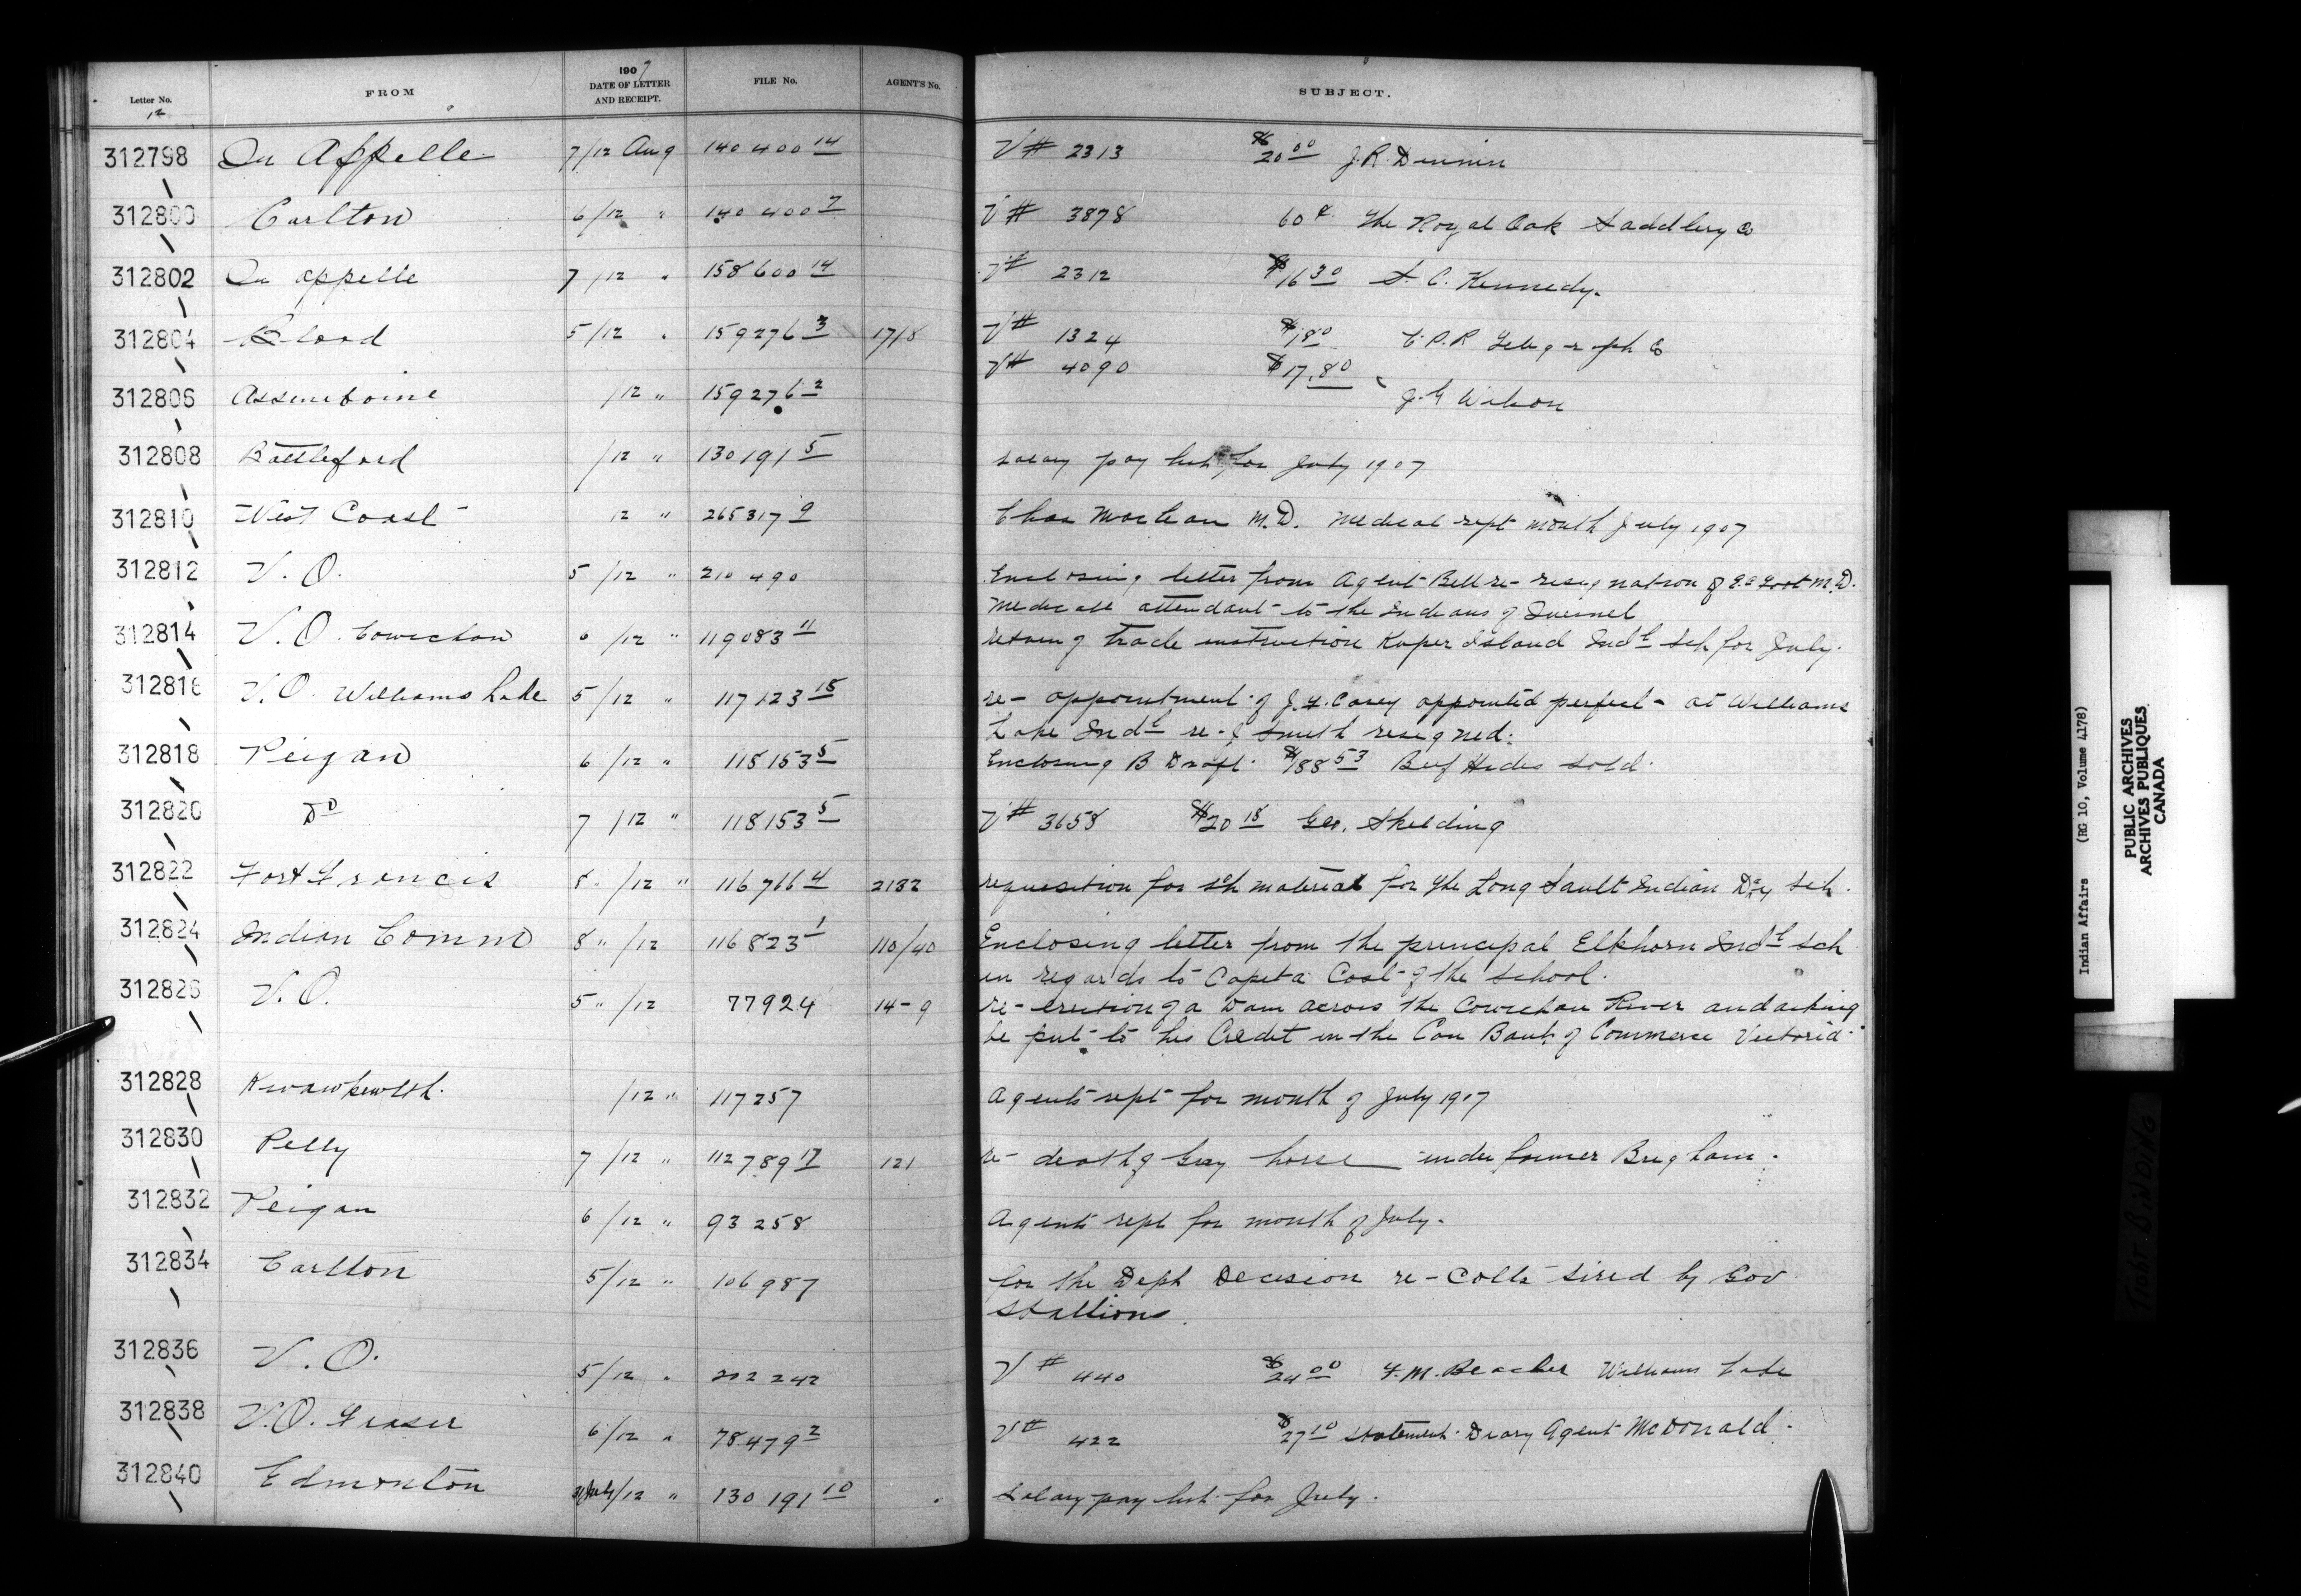 Letter No. FROM 1907 DATE OF LETTER AND RECEIPT. FILE No. AGENT'S No. SUBJECT.
12
312798 Qu Appelle 7/12 Aug 140400 14 V# 2313 $20 00 J.R. Dennin
312800 Carlton 6/12 " 140400 7 V# 3878 60¢ The Royal Oak Saddlery Co
312802 Qu appelle 7/12 " 158600 14 V# 2312 $16 30 S. C. Kennedy.
312804 Blood 5/12 " 159276 3 1718 V# 1324 $1 80 C.P.R Telegraph Co
312806 Assiniboine /12 " 159276 2 V# 4090 $17.80 J.G Wilson
312808 Battleford /12 " 130191 5 salary pay list for July 1907
312810 West Coast 12 " 265317 9 Chas MacLean M.D. medical rept month July 1907
312812 V. O. 5/12 " 210490 Enclosing letter from Agent Bell re- resignation of M.D.
Medicale attendant to the Indians of Quesnel
312814 V. O. Cowichan 6/12 " 119083 11 retaing trade instruction Kuper Island Indl Sch for July.
312816 V. O. Williams Lake 5/12 " 117123 15 re- appointment of J.F. Carey appointed perfect at Williams
Lake Indl re- J Smith resigned.
312818 Peigan 6/12 " 118153 5 Enclosing B Draft $188 53 Beef Hides sold.
312820 Do 7/12 " 118153 5 V# 3658 $20 18 Geo. Skelding
312822 Fort Francis 8 " /12 " 116766 4 2132 requisition for sch material for the Long Sault Indian Day sch.
312824 Indian Comm 8 " /12 116823 1 110/40 Enclosing letter from the principal Elkhorn Indl sch
in regards to Capita Cost of the school.
312826 V. O. 5 " /12 77924 14-9 re- erection of a Dam across the Cowichan River and asking
be put to his Credit in the Can Bank of Commerce Victoria.
312828 Kwawkewlth. /12 " 117257 Agents rept for month of July 1907
312830 Pelly 7/12 " 112789 17 121 re- death of Gray horse under farmer Brigham.
312832 Peigan 6/12 " 93258 Agents rept for month of July.
312834 Carlton 5/12 " 106987 for the Dept Decision re- Colts sired by Gov
Stallions.
312836 V. O. 5/12 " 202242 V# 440 $24 00 F.M. Beacher Williams Lake
312838 V. O. Fraser 6/12 " 78479 2 V# 422 $27 10 statement Diary Agent McDonald
312840 Edmonton 31 July/12 " 130191 10 Salary pay list for July.
Indian Affairs (RG 10, Volume 4178)
PUBLIC ARCHIVES
ARCHIVES PUBLIQUES
CANADA
TIGHT BINDING